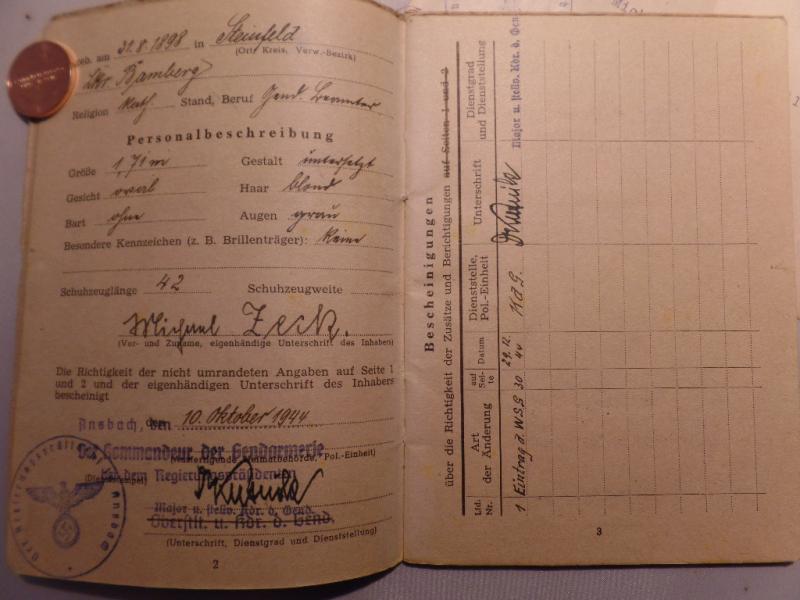 geb. am 31.8.1898 in Steinfeld
(Ort, Kreis, Verw.-Bezirk)
Lkr. Bamberg
Religion kath. Stand, Beruf Gend. Beamter
Personalbeschreibung
Größe 1,71 m Gestalt untersetzt
Gesicht oval Haar blond
Bart ohne Augen grau
Besondere Kennzeichen (z. B. Brillenträger): keine
Schuhzeuglänge 42 Schuhzeugweite
Michael Zeck.
(Vor- und Zuname, eigenhändige Unterschrift des Inhabers)
Die Richtigkeit der nicht umrandeten Angaben auf Seite 1
und 2 und der eigenhändigen Unterschrift des Inhabers
bescheinigt
Ansbach, den 10. Oktober 1944
Der Kommandeur der Gendarmerie
Heimatbehörde, Pol.-Einheit)
bei dem Regierungspräsidenten
(Dienstsiegel)
Major u. stellv. Kdr. d. Gend.
Oberstlt. u. Kdr. d. Gend.
(Unterschrift, Dienstgrad und Dienststellung)
Ansbach
2
Bescheinigungen
über die Richtigkeit der Zusätze und Berichtigungen auf Seiten 1 und 2
Lfd. Nr. Art der Änderung auf Seite Datum Dienststelle, Pol.-Einheit Unterschrift Dienstgrad und Dienststellung
1 Eintrag d. W.S.G 30 29.12. 44 K.d.G. Major u. stellv. Kdr. d. Gend.
3